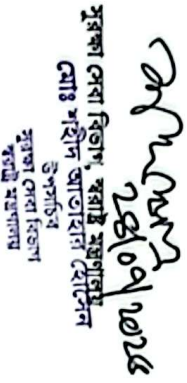 ২৪/০৭/২০২৪
সুরক্ষা সেবা বিভাগ, স্বরাষ্ট্র মন্ত্রণালয়
মোঃ শহীদ আতাহার হোসেন
উপসচিব
সুরক্ষা সেবা বিভাগ
স্বরাষ্ট্র মন্ত্রণালয়